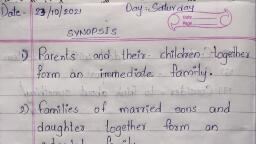 Date - 23/10/2021 Day - Saturday
Date
Page
SYNOPSIS
1) Parents and their children together
form an immediate family.
2) families of married sons and
daughter together form an